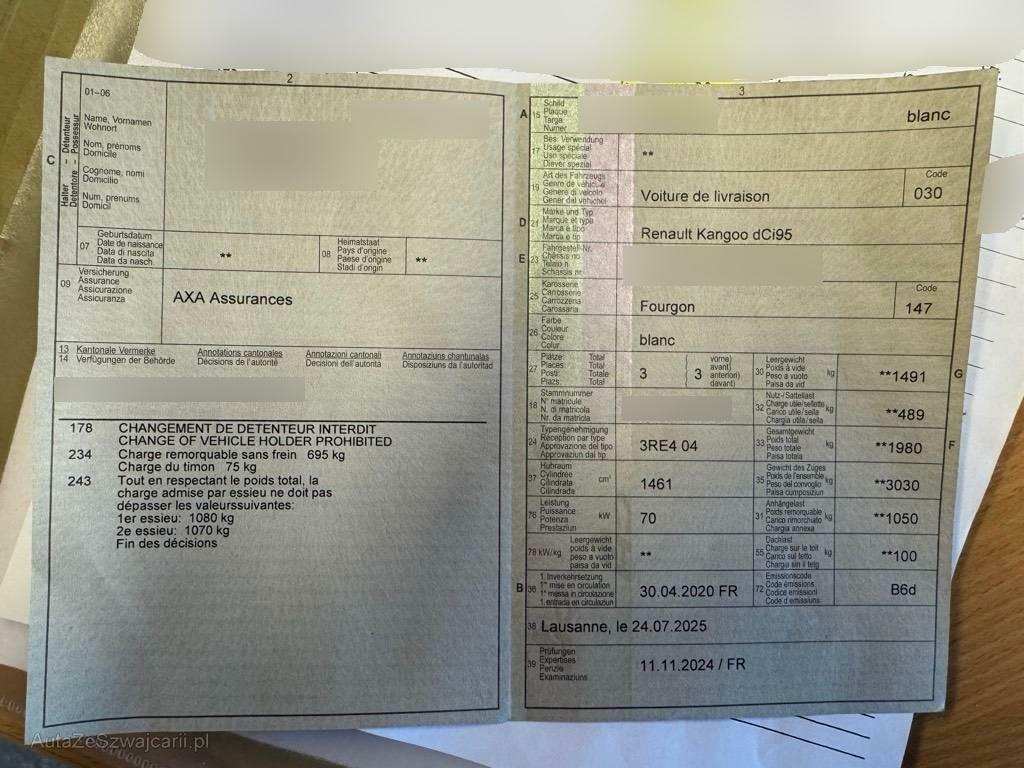 2
01–06
Name, Vornamen
Wohnort
Nom, prénoms
Domicile
Cognome, nomi
Domicilio
Num, prenums
Domicil
C
Halter – Détenteur
Detentore – Possessur
07
Geburtsdatum
Date de naissance
Data di nascita
Data da nasch.
**
08
Heimatstaat
Pays d'origine
Paese d'origine
Stadi d'origin
**
09
Versicherung
Assurance
Assicurazione
Assicuranza
AXA Assurances
13 Kantonale Vermerke
14 Verfügungen der Behörde
Annotations cantonales
Décisions de l'autorité
Annotazioni cantonali
Decisioni dell'autorità
Annotaziuns chantunalas
Disposiziuns da l'autoritad
178 CHANGEMENT DE DETENTEUR INTERDIT
CHANGE OF VEHICLE HOLDER PROHIBITED
234 Charge remorquable sans frein 695 kg
Charge du timon 75 kg
243 Tout en respectant le poids total, la
charge admise par essieu ne doit pas
dépasser les valeurssuivantes:
1er essieu: 1080 kg
2e essieu: 1070 kg
Fin des décisions
3
A
15
Schild
Plaque
Targa
Numer
blanc
17
Bes. Verwendung
Usage spécial
Uso speciale
Diever spezial
**
19
Art des Fahrzeugs
Genre de véhicule
Genere di veicolo
Gener dal vehichel
Voiture de livraison
Code
030
D
21
Marke und Typ
Marque et type
Marca e tipo
Marca e tip
Renault Kangoo dCi95
E
23
Fahrgestell-Nr.
Châssis no
Telaio n.
Schassis nr.
25
Karosserie
Carrosserie
Carrozzeria
Carossaria
Fourgon
Code
147
26
Farbe
Couleur
Colore
Colur
blanc
27
Plätze: Total
Places: Total
Posti: Totale
Plazs: Total
3
{ 3
vorne)
avant)
anteriori)
davant)
30
Leergewicht
Poids à vide
Peso a vuoto
Paisa da vid
kg
**1491
G
18
Stammnummer
N° matricule
N. di matricola
Nr. da matricla
32
Nutz-/Sattellast
Charge utile/sellette
Carico utile/sella
Chargia utila/sella
kg
**489
24
Typengenehmigung
Réception par type
Approvazione del tipo
Approvaziun dal tip
3RE4 04
33
Gesamtgewicht
Poids total
Peso totale
Paisa totala
kg
**1980
F
37
Hubraum
Cylindrée
Cilindrata
Cilindrada
cm³
1461
35
Gewicht des Zuges
Poids de l'ensemble
Peso del convoglio
Paisa cumposiziun
kg
**3030
76
Leistung
Puissance
Potenza
Prestaziun
kW
70
31
Anhängelast
Poids remorquable
Carico rimorchiato
Chargia annexa
kg
**1050
78 kW/kg
Leergewicht
poids à vide
peso a vuoto
paisa da vid
**
55
Dachlast
Charge sur le toit
Carico sul tetto
Chargia sin il tetg
kg
**100
B
36
1. Inverkehrsetzung
1re mise en circulation
1a messa in circolazione
1. entrada en circulaziun
30.04.2020 FR
72
Emissionscode
Code émissions
Codice emissioni
Code d'emissiuns
B6d
38 Lausanne, le 24.07.2025
39
Prüfungen
Expertises
Perizie
Examinaziuns
11.11.2024 / FR
AutaZeSzwajcarii.pl